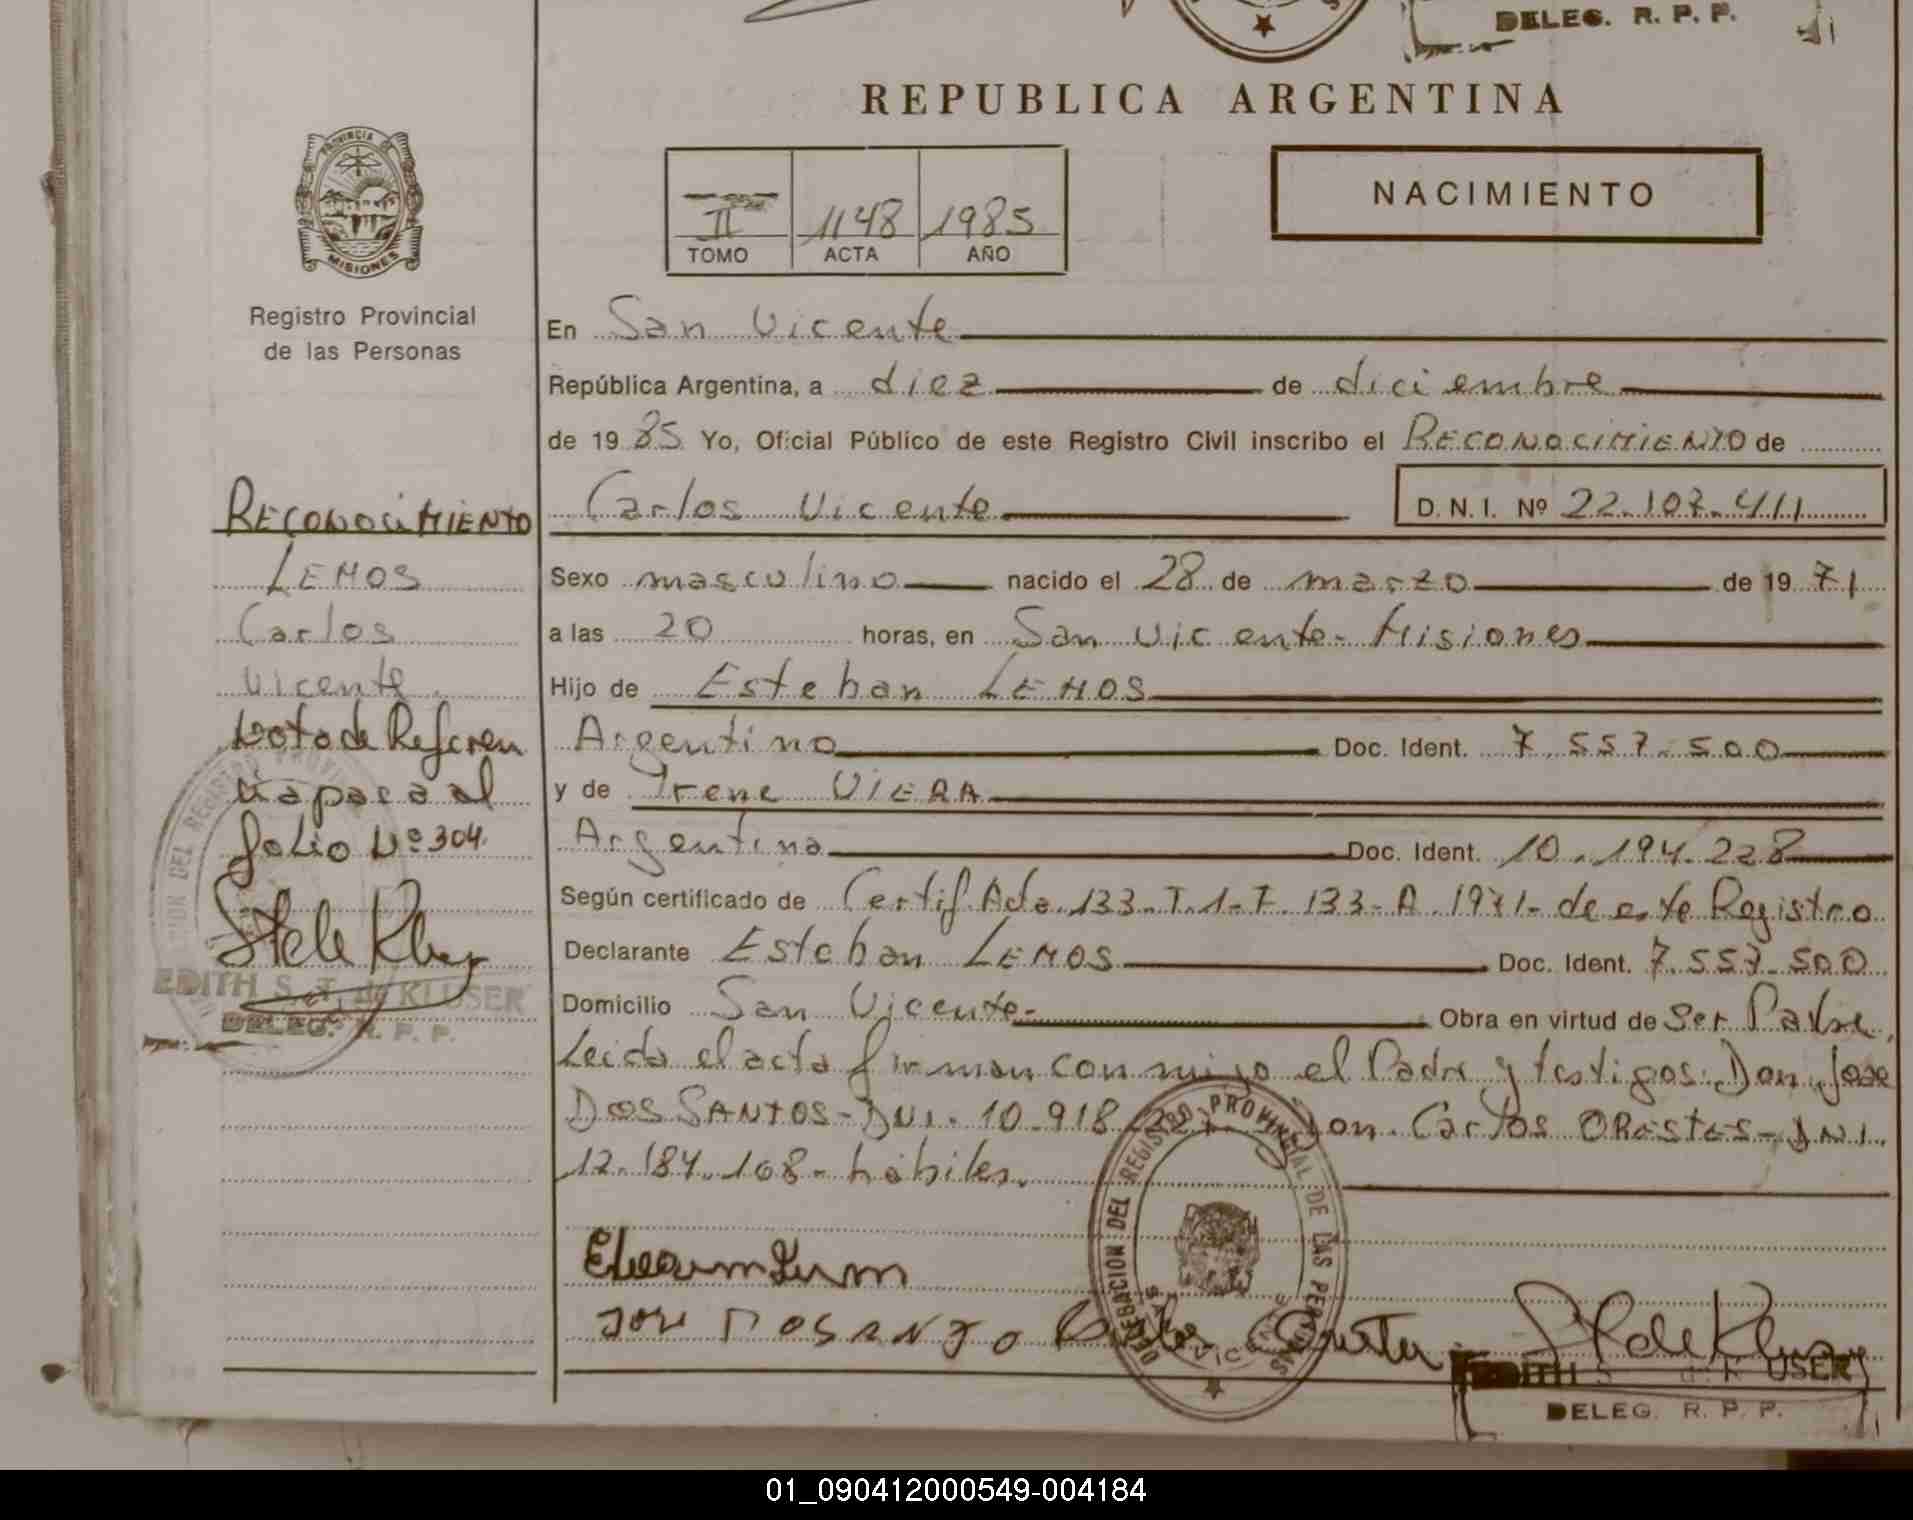 DELEG. R. P. P.
REPUBLICA ARGENTINA
PROVINCIA DE
MISIONES
II 1148 1985
TOMO ACTA AÑO
NACIMIENTO
Registro Provincial
de las Personas
En San Vicente
República Argentina, a diez de diciembre
de 1985 Yo, Oficial Público de este Registro Civil inscribo el RECONOCIMIENTO de
Carlos Vicente D. N. I. Nº 22.107.411
Sexo masculino nacido el 28 de marzo de 1971
a las 20 horas, en San Vicente - Misiones
Hijo de Esteban LEMOS
Argentino Doc. Ident. 7.557.500
y de Irene VIERA
Argentina Doc. Ident. 10.194.228
Según certificado de Certif. Acta. 133-T.1-F.133-A.1971- de este Registro
Declarante Esteban LEMOS Doc. Ident. 7.557.500
Domicilio San Vicente- Obra en virtud de Ser Padre,
Leida el acta firman conmigo el Padre y testigos: Don Jose
DOS SANTOS - DNI. 10.918 Don Carlos ORESTES - DNI.
12.184.168 - hábiles.
RECONOCIMIENTO
LEMOS
Carlos
Vicente.
Nota de Referen
cia pasa al
folio Nº 304.
EDITH S. T. de KLUSER
DELEG. R. P. P.
DELEGACION DEL REGISTRO PROVINCIAL DE LAS PERSONAS
SAN VICENTE
EDITH S. KLUSER
DELEG. R. P. P.
01_090412000549-004184